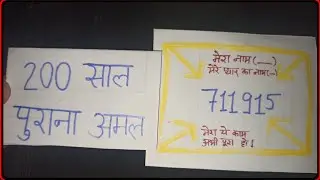 200 साल
पुराना अमल
मेरा नाम (___)
मेरे प्यार का नाम (–)
711915
मेरा ये काम
अभी पूरा हो।